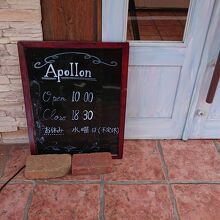 Apollon
Open 10:00
Close 18:30
お休み 水曜日(不定休)